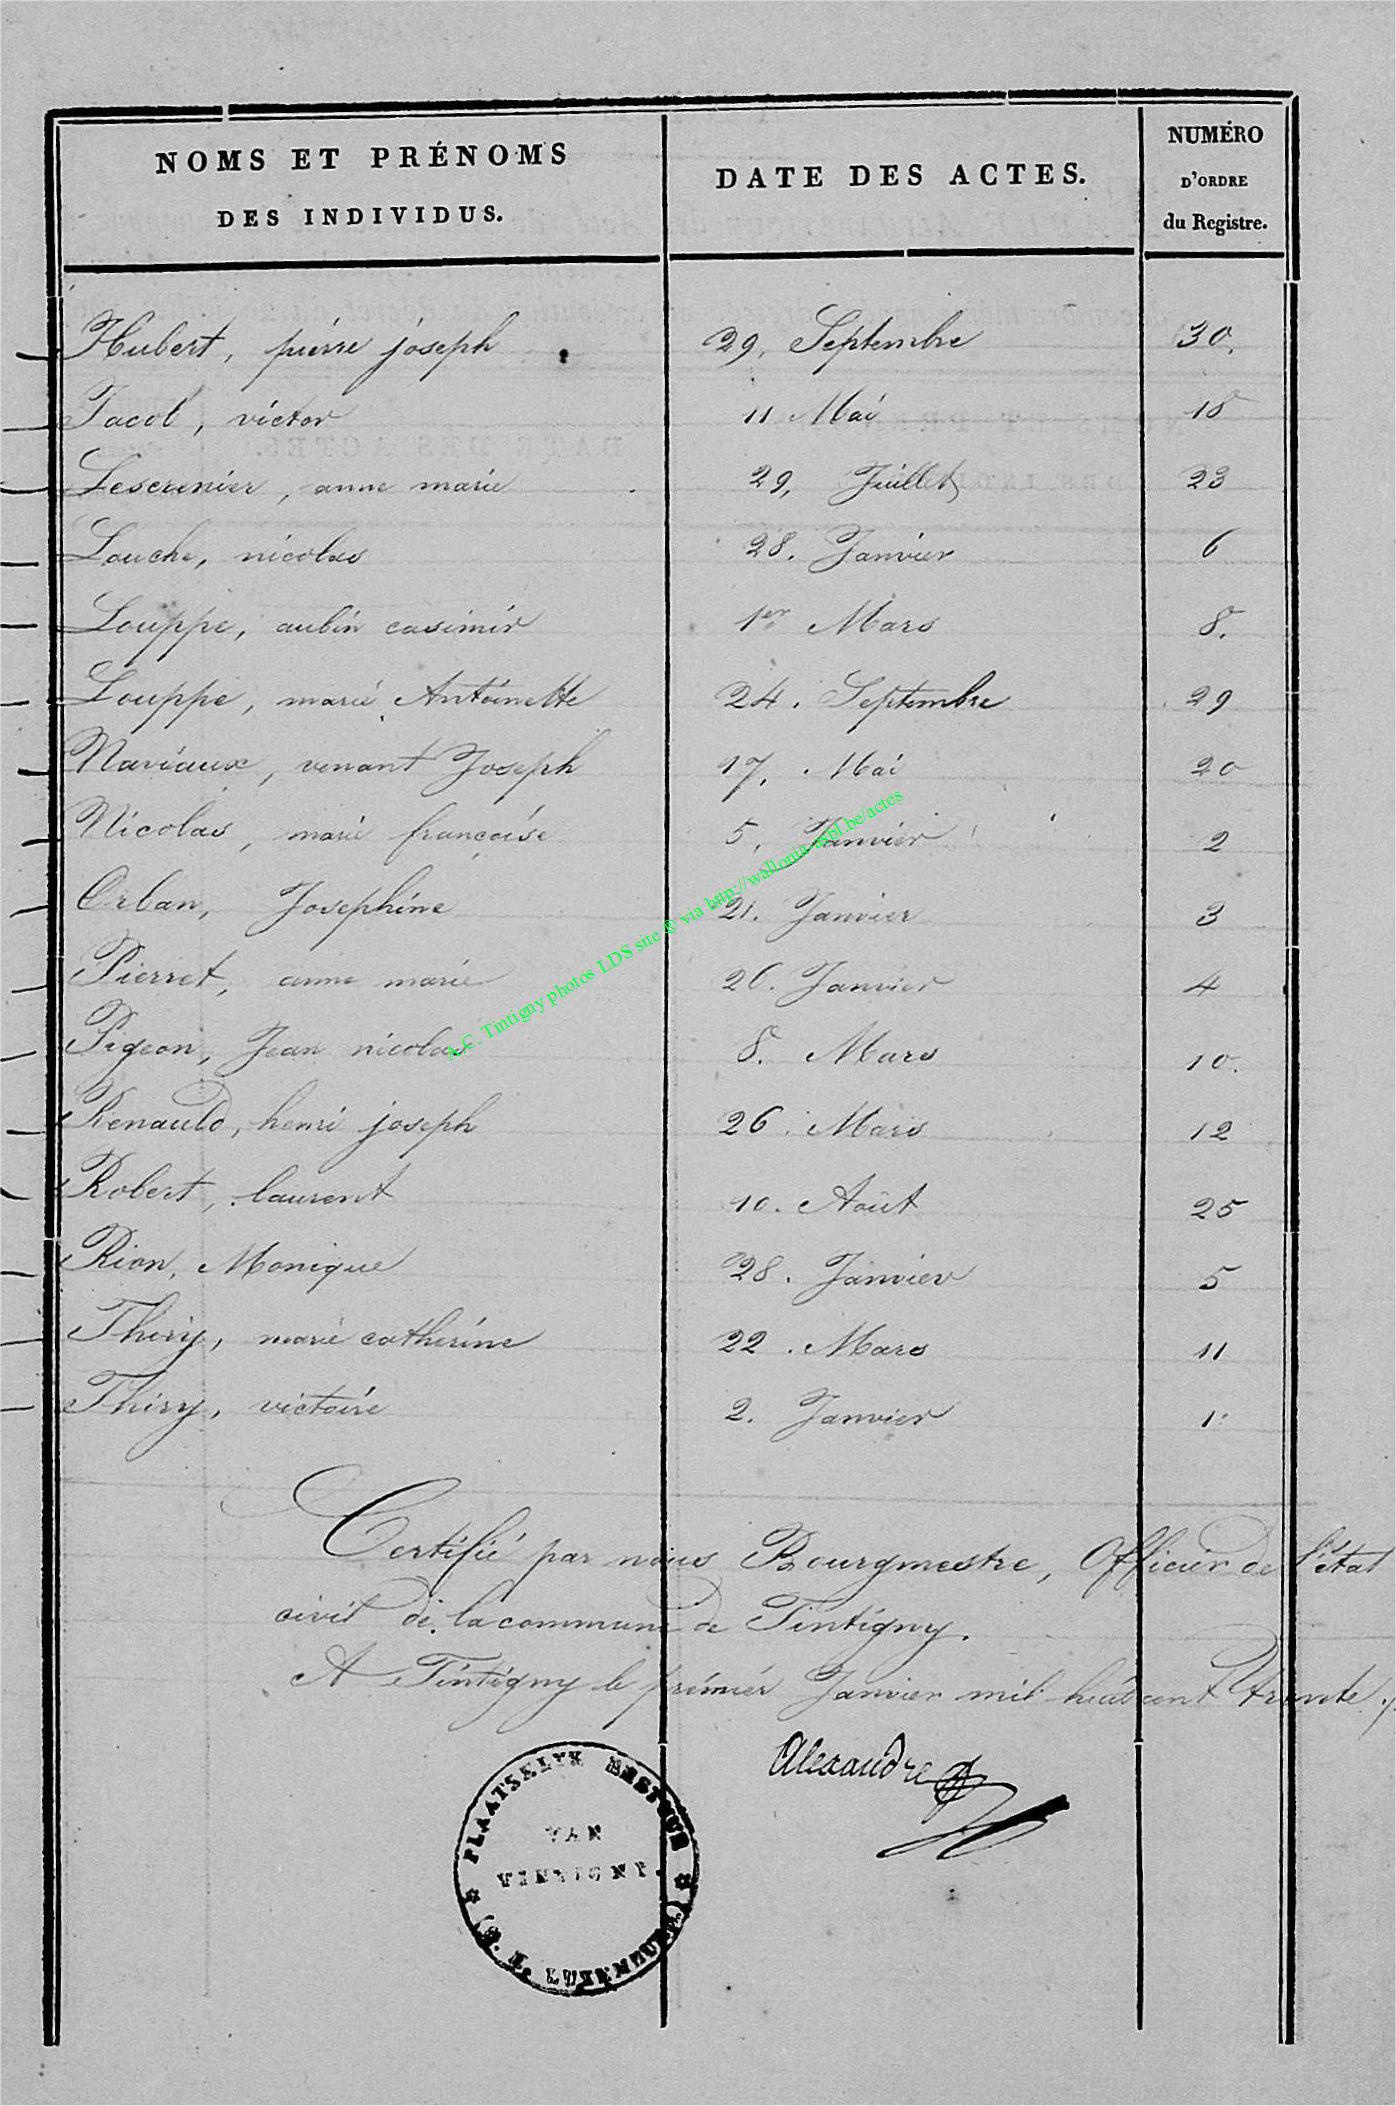 NOMS ET PRÉNOMS
DES INDIVIDUS.
DATE DES ACTES.
NUMÉRO
D'ORDRE
du Registre.
Hubert, pierre joseph 29, Septembre 30.
Jacob, victor 11 Mai 18
Lescrenier, anne marie 29, Juillet 23
Louche, nicolas 28. Janvier 6
Louppe, aubin casimir 1er Mars 8.
Louppe, marie Antoinette 24. Septembre 29
Naviaux, venant Joseph 17, Mai 20
Nicolas, marie françoise 5, Janvier 2
Orban, Josephine 21. Janvier 3
Pierret, anne marie 26. Janvier 4
Pigeon, Jean nicolas 8. Mars 10.
Renauld, henri joseph 26. Mars 12
Robert, laurent 10. Août 25
Rion, Monique 28. Janvier 5
Thiry, marie catherine 22. Mars 11
Thiry, victoire 2. Janvier 1.
A.C. Tintigny photos LDS site @ via http://wallonia-asbl.be/actes
Certifié par nous Bourgmestre, Officier de l'état
civil de la commune de Tintigny.
A Tintigny le premier Janvier mil huit cent trente ./.
Alexandre
PLAATSELYK BESTUUR
VAN
TINTIGNY.
(G. H. LUXEMBURG)